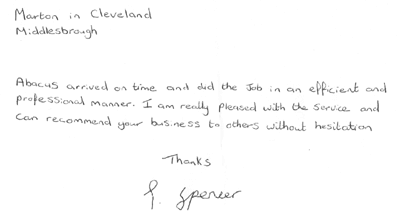 Marton in Cleveland
Middlesbrough
Abacus arrived on time and did the Job in an efficient and
professional manner. I am really pleased with the service and
can recommend your business to others without hesitation
Thanks
Spencer